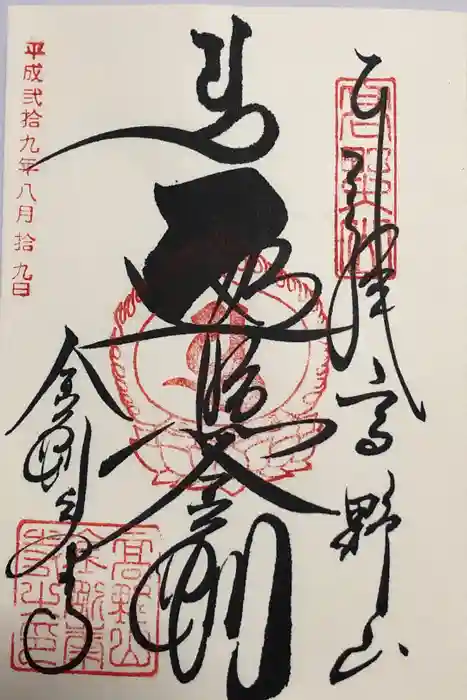 高野山
遍照金剛
金剛峯寺
高野山
金剛峯
寺之印
平成弐拾九年八月拾九日